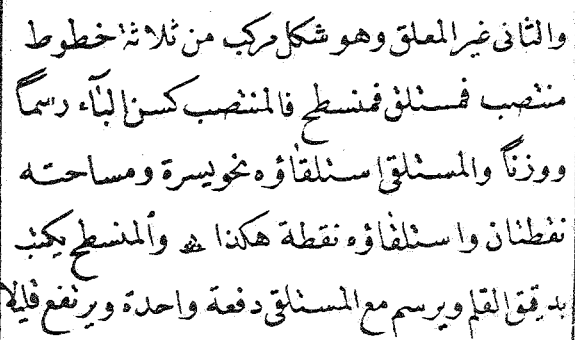 والثانى غير المعلق وهو شكل مركب من ثلاثة خطوط
منتصب فمستلق فمنسطح فالمنتصب كسن الباء رسماً
ووزناً والمستلقى استلقاؤه نحويسرة ومساحته
نقطتان واستلقاؤه نقطة هكذا والمنسطح يكتب
بدقة القلم ويرسم مع المستلقى دفعة واحدة ويرتفع قليلا